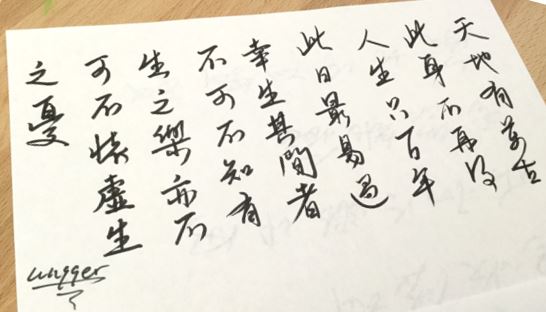 天地有萬古
此身不再得
人生只百年
此日最易過
幸生其間者
不可不知有
生之樂亦不
可不懷虛生
之憂